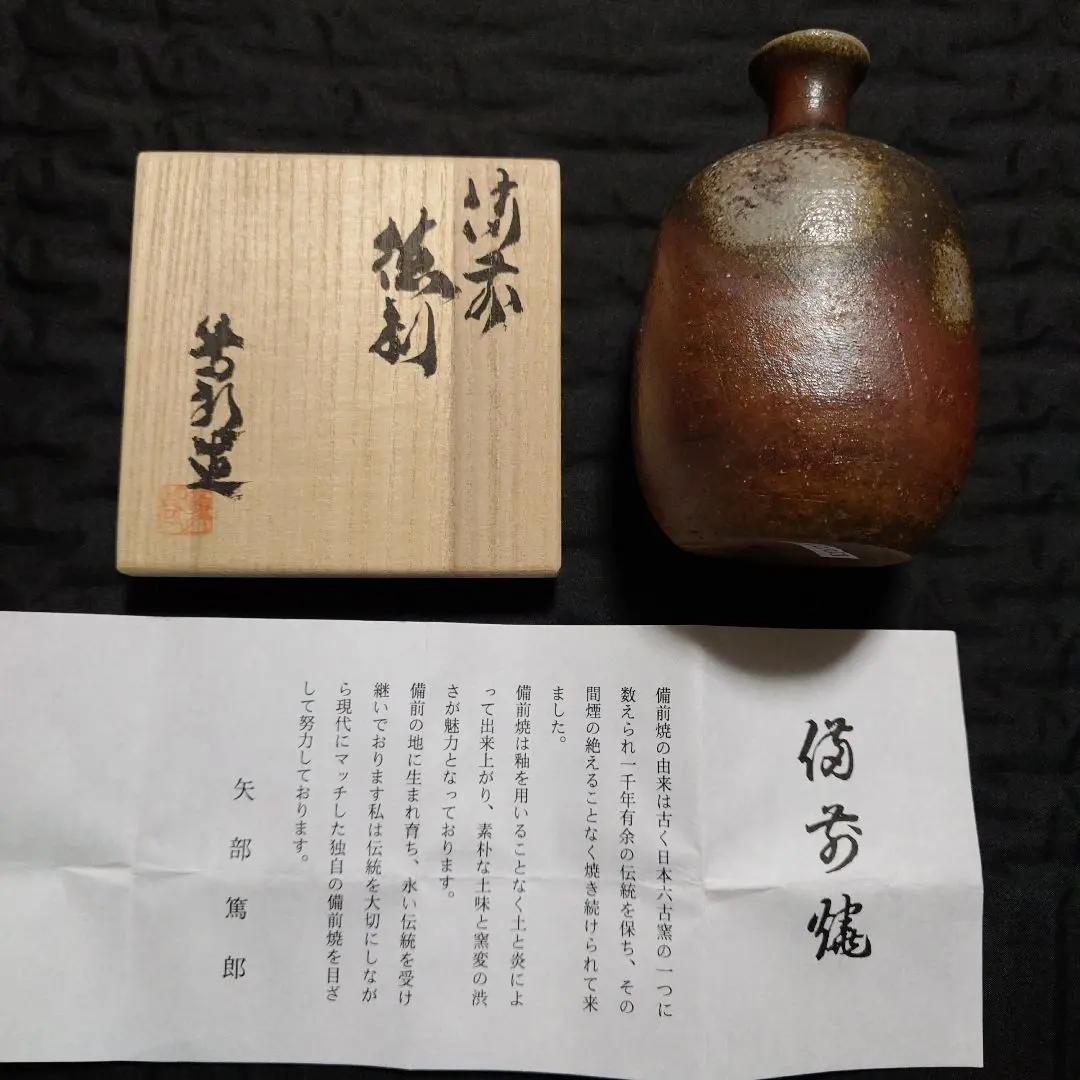 備前
徳利
篤郎造
備前焼
備前焼の由来は古く日本六古窯の一つに
数えられ一千年有余の伝統を保ち、その
間煙の絶えることなく焼き続けられて来
ました。
備前焼は釉を用いることなく土と炎によ
って出来上がり、素朴な土味と窯変の渋
さが魅力となっております。
備前の地に生まれ育ち、永い伝統を受け
継いでおります私は伝統を大切にしなが
ら現代にマッチした独自の備前焼を目ざ
して努力しております。
矢部篤郎